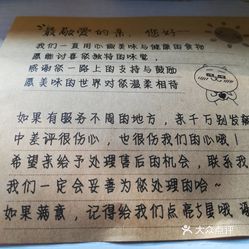 最敬爱的亲，您好——
我们一直用心做美味与健康的食物
愿能讨喜您独特的味蕾，
感谢您一路上的支持与鼓励
愿美味的世界对您温柔相待
如果有服务不周的地方，亲千万别发脾
中差评很伤心，也很伤我们的心哦！
希望亲给予处理售后的机会，联系我
我们一定会妥善为您处理的哈~
如果满意，记得给我们点亮5星哦
大众点评